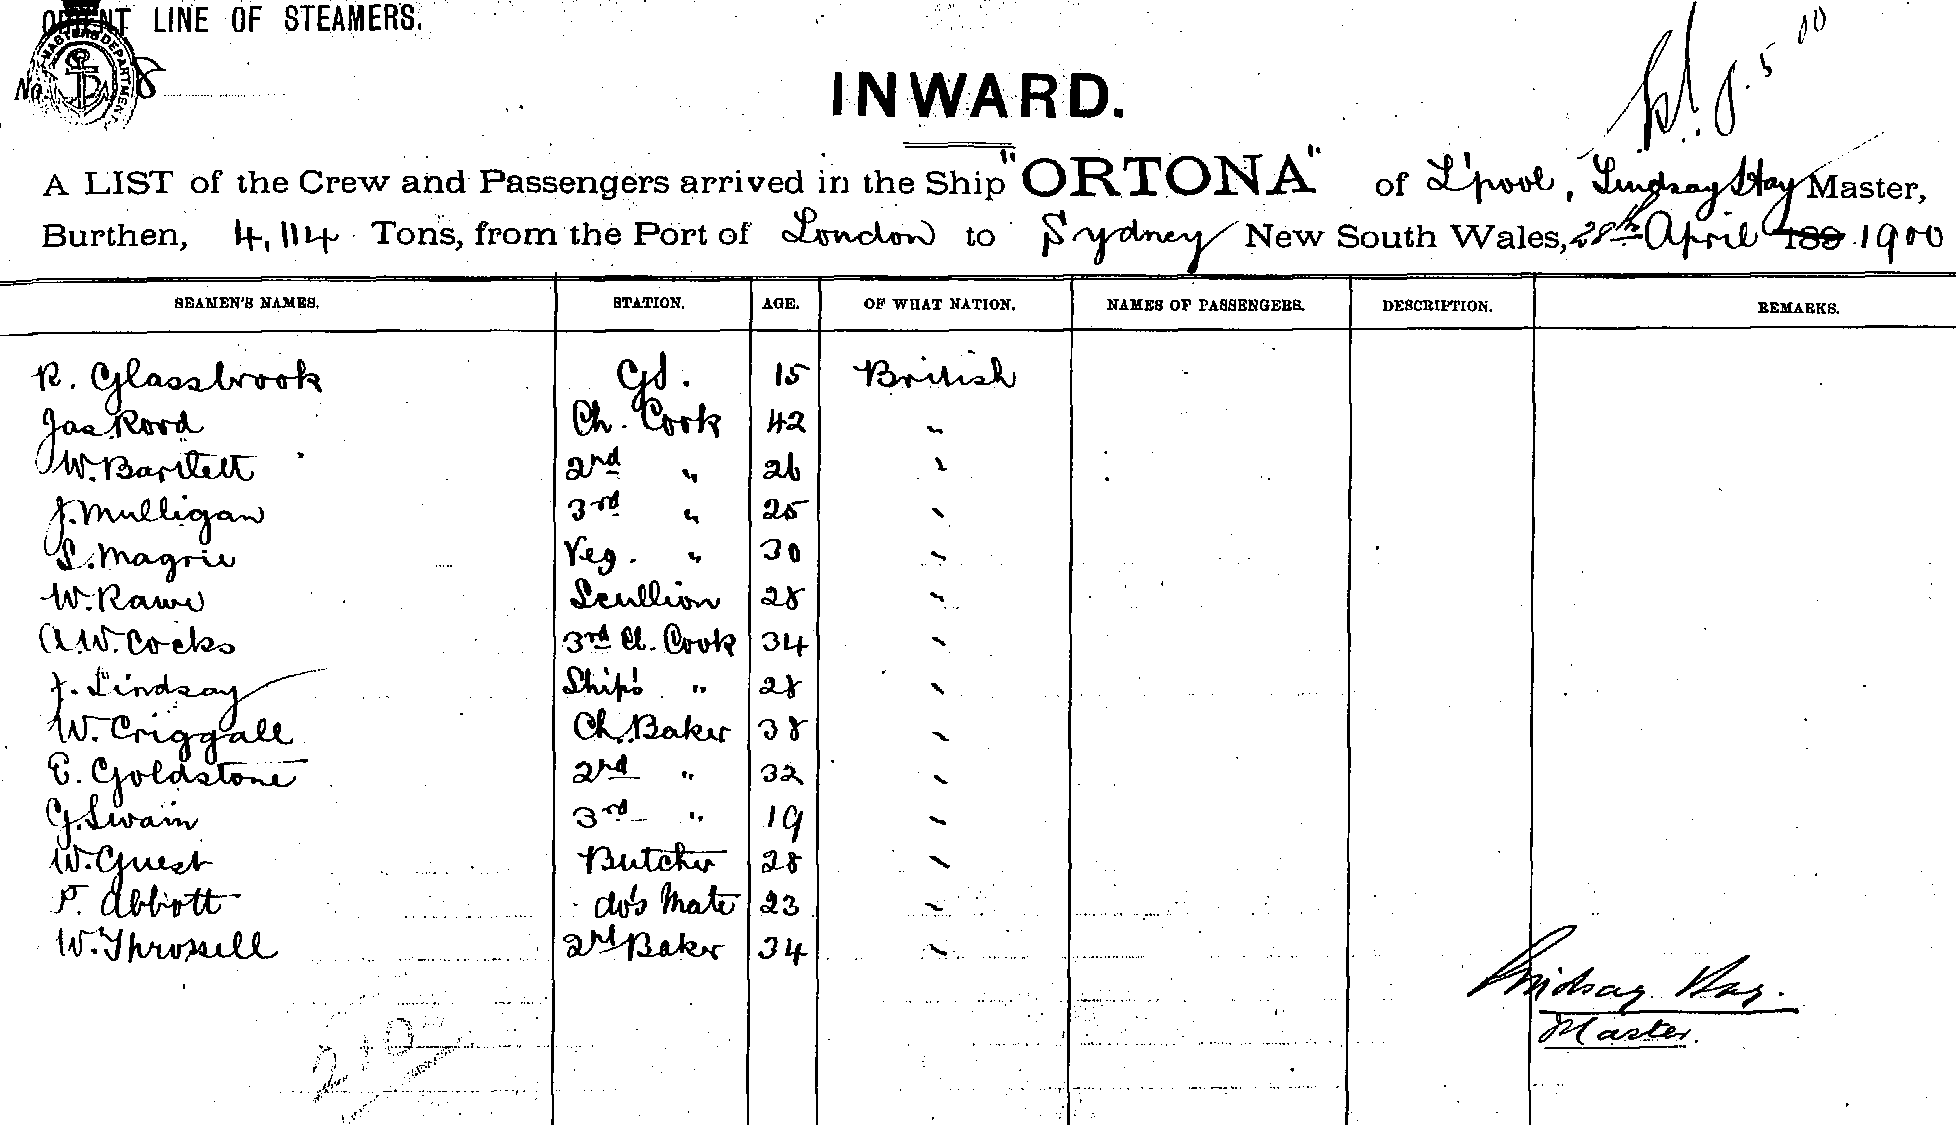 ORIENT LINE OF STEAMERS.
MASTERS DEPARTMENT
No. 8
INWARD.
A LIST of the Crew and Passengers arrived in the Ship "ORTONA" of L'pool, Lindsay Hay Master,
Burthen, 4,114 Tons, from the Port of London to Sydney New South Wales, 28th April 189 1900
SEAMEN'S NAMES. STATION. AGE. OF WHAT NATION. NAMES OF PASSENGERS. DESCRIPTION. REMARKS.
R. Glassbrook Gd. 15 British
Jas Rood Ch. Cook 42 "
W. Bartlett 2nd " 26 "
J. Mulligan 3rd " 25 "
S. Magrie Veg. " 30 "
W. Rawe Scullion 28 "
A.W. Cocks 3rd Cl. Cook 34 "
J. Lindsay Ship's " 28 "
W. Criggall Ch. Baker 38 "
E. Goldstone 2nd " 32 "
G. Swain 3rd " 19 "
W. Guest Butcher 28 "
P. Abbott do's Mate 23 "
W. Throssell 2nd Baker 34 "
Lindsay Hay.
Master.
210